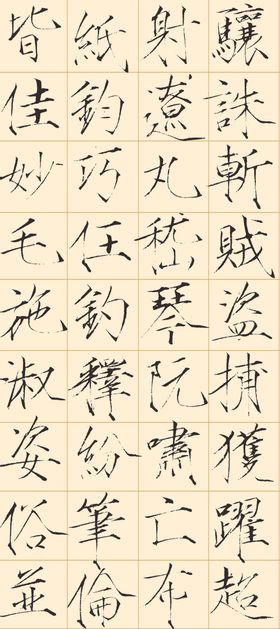 驤誅斬賊盜捕獲躍超
射遼丸嵇琴阮嘯亡布
紙鈞巧任釣釋紛筆倫
皆佳妙毛施淑姿俗並